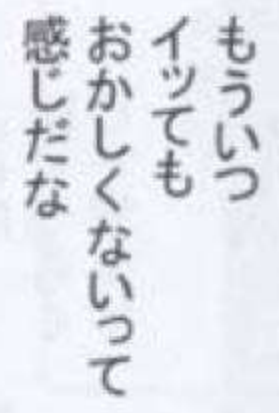 もういつ
イッても
おかしくないって
感じだな